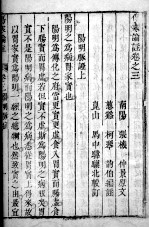 傷寒論註卷之三
南陽 張機 仲景原文
慈谿 柯琴 韻伯編註
崑山 馬中驊驤北較訂
陽明脈證上
陽明之為病胃家實也
陽明為傳化之府當更實更虛食入胃實而腸虛食
下腸實而胃虛若但實不虛斯為陽明之病根矣胃
實不是陽明病而陽明之為病悉從胃實上得來故
以胃家實為陽明一經之總綱也然致實之由最宜